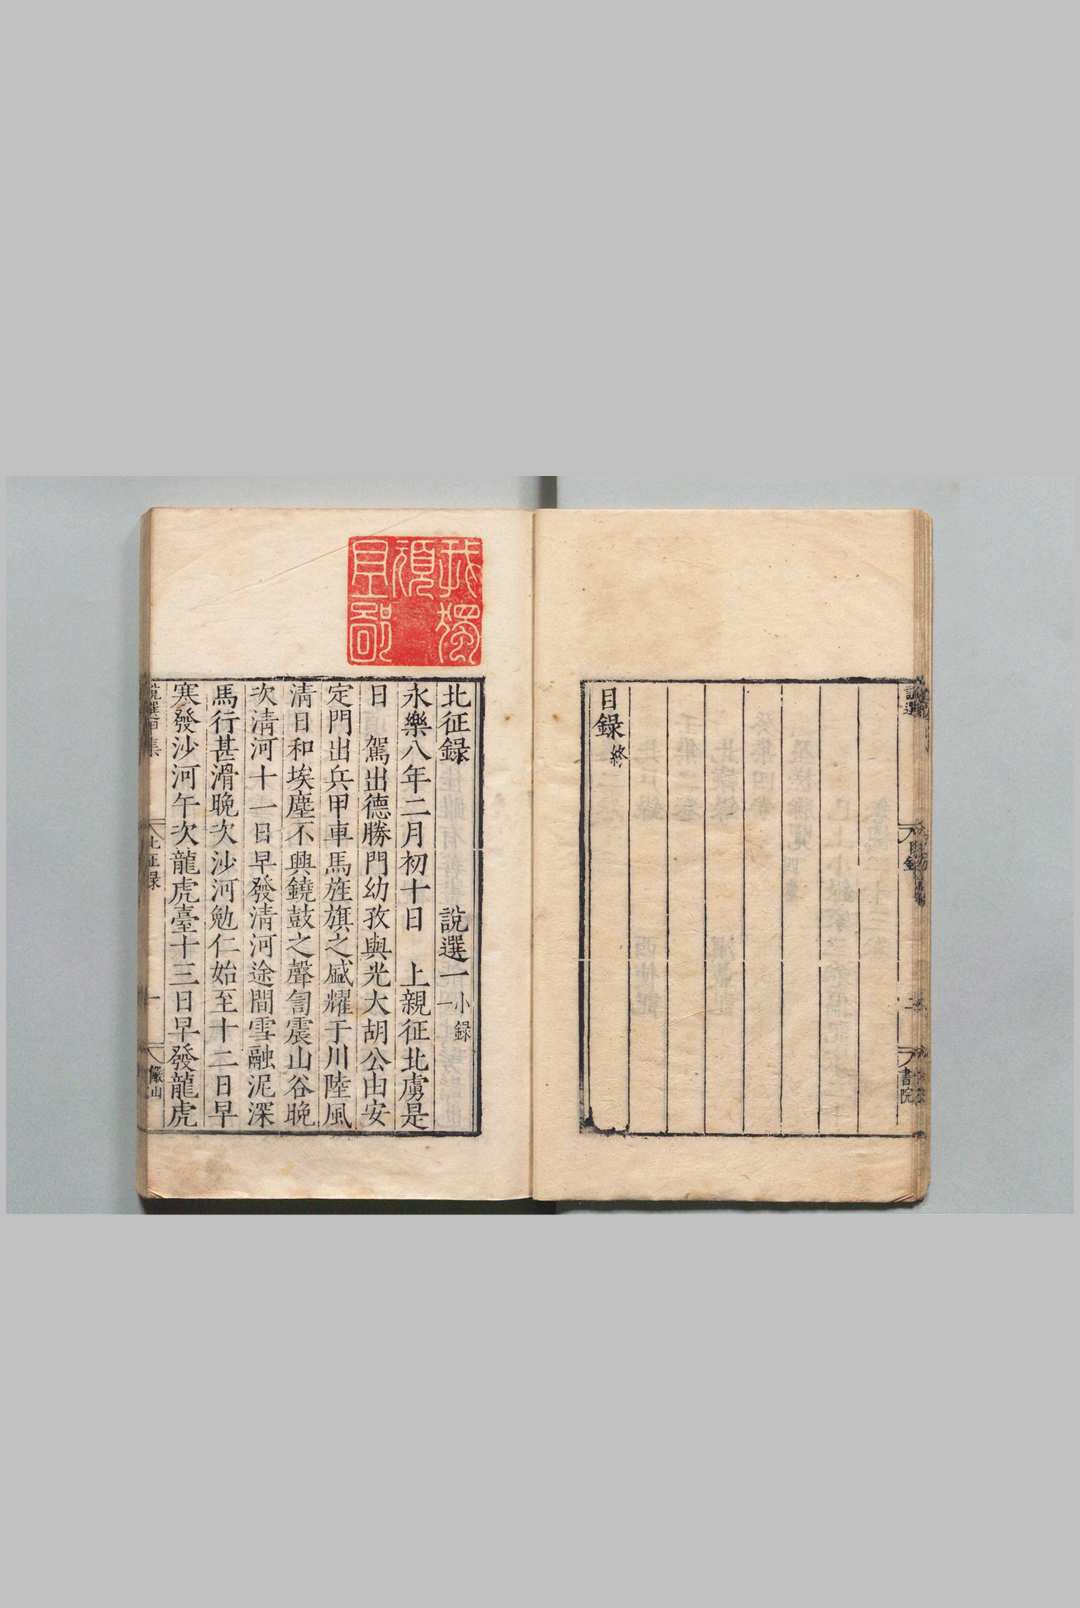 目録終
說選
目録
二
書院
我獨
須
且鄙
北征録 說選一 小録一
永樂八年二月初十日 上親征北虜是
日 駕出德勝門幼孜與光大胡公由安
定門出兵甲車馬旌旗之盛耀于川陸風
清日和埃塵不興鐃鼓之聲訇震山谷晚
次清河十一日早發清河途間雪融泥深
馬行甚滑晚次沙河勉仁始至十二日早
寒發沙河午次龍虎臺十三日早發龍虎
集
北征録
一
儼山